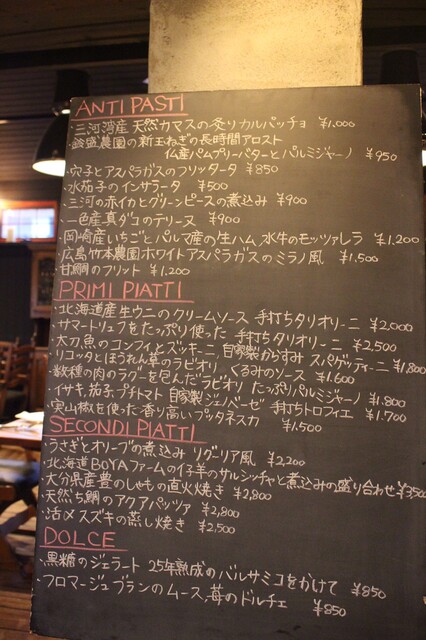 ANTI PASTI
・三河湾産 天然カマスの炙りカルパッチョ ¥1,000
・鈴盛農園の新玉ねぎの長時間アロスト
仏産パムプリーバターとパルミジャーノ ¥950
・穴子とアスパラガスのフリッタータ ¥850
・水茄子のインサラータ ¥500
・三河の赤イカとグリーンピースの煮込み ¥900
・一色産真ダコのテリーヌ ¥900
・岡崎産いちごとパルマ産の生ハム、水牛のモッツァレラ ¥1,200
・広島竹本農園ホワイトアスパラガスのミラノ風 ¥1,500
・甘鯛のフリット ¥1,200
PRIMI PIATTI
・北海道産生ウニのクリームソース 手打ちタリオリーニ ¥2,000
・サマートリュフをたっぷり使った 手打ちタリオリーニ ¥2,500
・太刀魚のコンフィとズッキーニ、自家製からすみ スパゲッティーニ ¥1,800
・リコッタとほうれん草のラビオリ くるみのソース ¥1,600
・数種の肉のラグーを包んだラビオリ たっぷりパルミジャーノ ¥1,800
・イサキ、茄子、プチトマト 自家製ジェノベーゼ 手打ちトロフィエ ¥1,700
・実山椒を使った香り高いプッタネスカ ¥1,500
SECONDI PIATTI
・うさぎとオリーブの煮込み リグーリア風 ¥2,200
・北海道BOYAファームの仔羊のサルシッチャと煮込みの盛り合わせ
・大分県産豊のしゃもの直火焼き ¥2,800
・天然ち鯛のアクアパッツァ ¥2,800
・活〆スズキの蒸し焼き ¥2,500
DOLCE
・黒糖のジェラート 25年熟成のバルサミコをかけて ¥850
・フロマージュブランのムース、苺のドルチェ ¥850